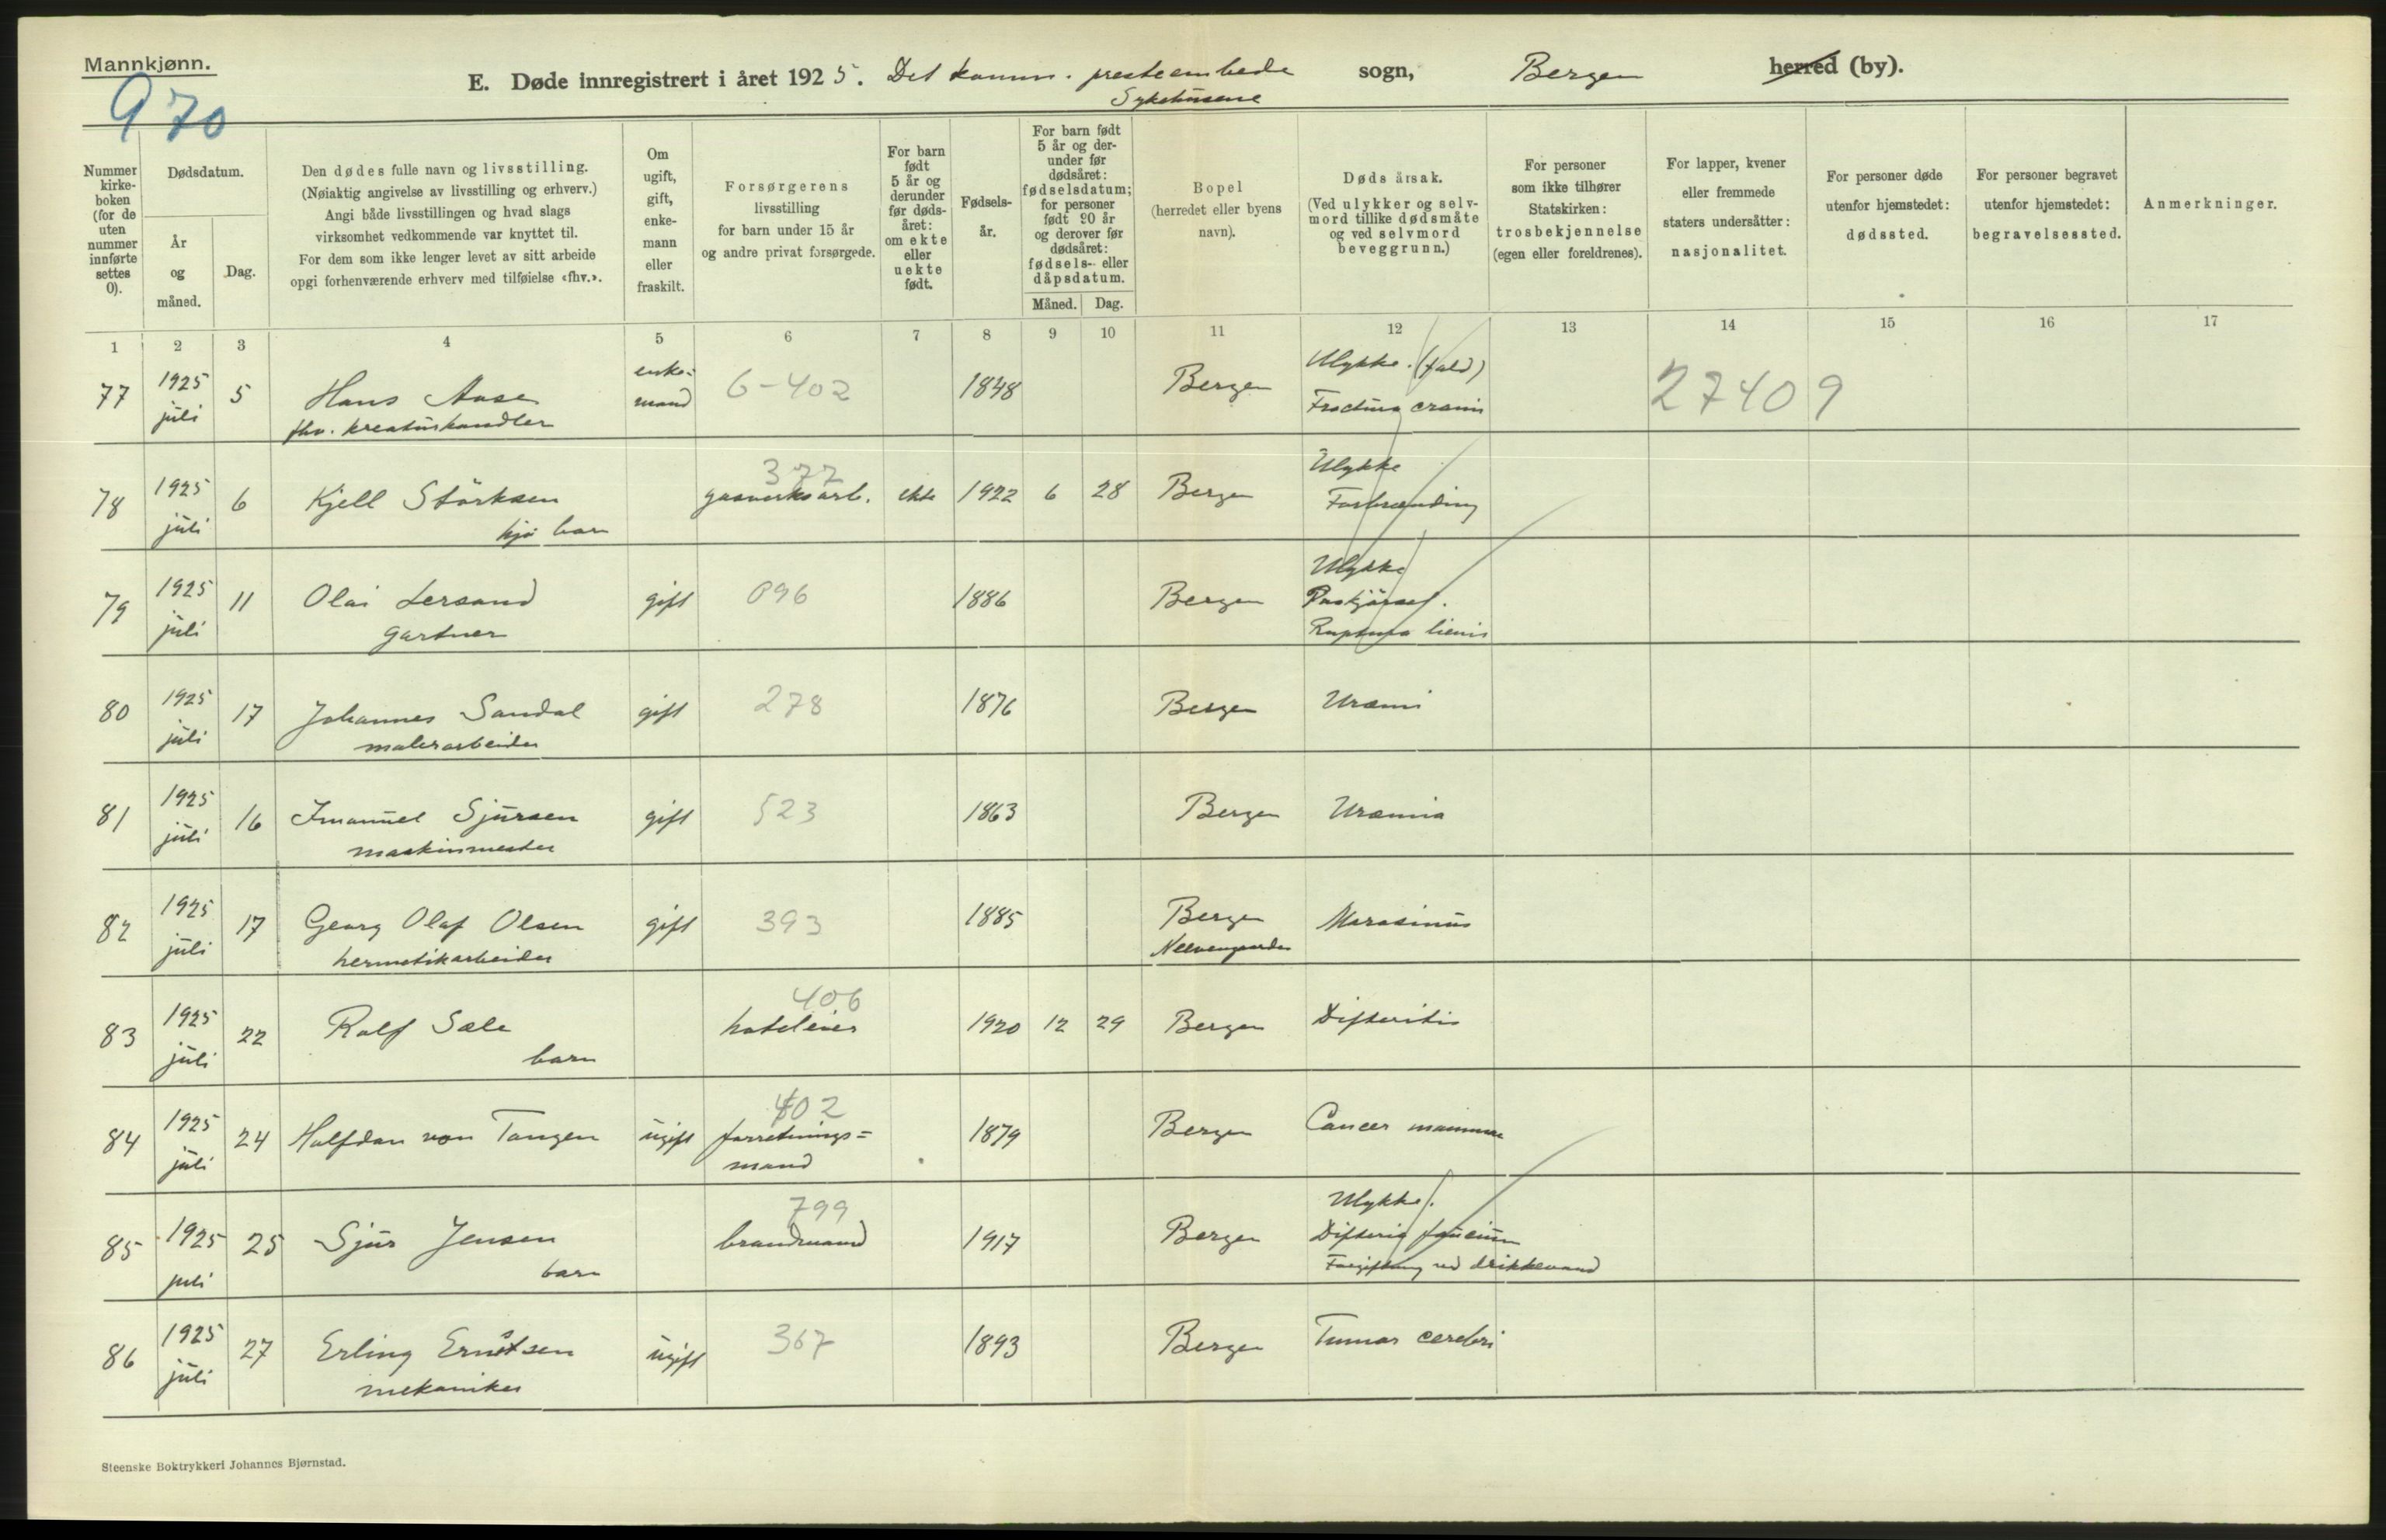 Mannkjønn.
970
E. Døde innregistrert i året 1925. Det komm. presteembede sogn, Bergen herred (by).
Sykehusene
Nummer kirke-boken (for de uten nummer innførte settes 0).
Dødsdatum.
År og måned.
Dag.
Den dødes fulle navn og livsstilling.
(Nøiaktig angivelse av livsstilling og erhverv.)
Angi både livsstillingen og hvad slags
virksomhet vedkommende var knyttet til.
For dem som ikke lenger levet av sitt arbeide
opgi forhenværende erhverv med tilføielse «fhv.».
Om ugift, gift, enke-mann eller fraskilt.
Forsørgerens
livsstilling
for barn under 15 år
og andre privat forsørgede.
For barn født 5 år og derunder før døds-året: om ekte eller uekte født.
Fødsels-år.
For barn født 5 år og der-under før dødsåret: fødselsdatum; for personer født 20 år og derover før dødsåret: fødsels- eller dåpsdatum.
Måned. Dag.
Bopel
(herredet eller byens
navn).
Dødsårsak.
(Ved ulykker og selv-
mord tillike dødsmåte
og ved selvmord
beveggrunn.)
For personer
som ikke tilhører
Statskirken:
trosbekjennelse
(egen eller foreldrenes).
For lapper, kvener
eller fremmede
staters undersåtter:
nasjonalitet.
For personer døde
utenfor hjemstedet:
dødssted.
For personer begravet
utenfor hjemstedet:
begravelsessted.
Anmerkninger.
1 2 3 4 5 6 7 8 9 10 11 12 13 14 15 16 17
77 1925 juli 5 Hans Aase enke-mand 6-402 1848 Bergen Ulykke. (fald) 27409
fhv. kreaturhandler Fractura cranii
78 1925 juli 6 Kjell Störksen 377 gasverksarb. ekte 1922 6 28 Bergen Ulykke
barn Forbrænding
79 1925 juli 11 Olai Lersand gift 096 1886 Bergen Ulykke
gartner Paakjörsel.
Ruptura lienis
80 1925 juli 17 Johannes Sandal gift 278 1876 Bergen Uræmi
malerarbeider
81 1925 juli 16 Imanuel Sjursen gift 523 1863 Bergen Uræmia
maskinmester
82 1925 juli 17 Georg Olaf Olsen gift 393 1885 Bergen Marasmus
hermetikarbeider Neevengaarden
83 1925 juli 22 Rolf Sæle 406 hoteleier 1920 12 29 Bergen Difteritis
barn
84 1925 juli 24 Halfdan von Tangen ugift 402 forretnings=mand 1879 Bergen Cancer mammae
85 1925 juli 25 Sjur Jensen 799 brandmand 1917 Bergen Ulykke.
barn Difteria faucium
Forgiftning ved drikkevand
86 1925 juli 27 Erling Ernstsen ugift 367 1893 Bergen Tumor cerebri
mekaniker
Steenske Boktrykkeri Johannes Bjørnstad.